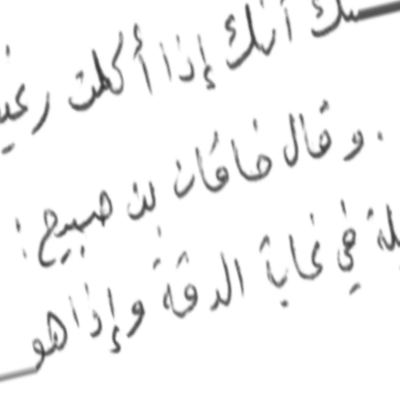 أنك إذا أكلت رغيـ
. وقال خاقان بن صبيح :
ـلة في غاية الدقة وإذا هو